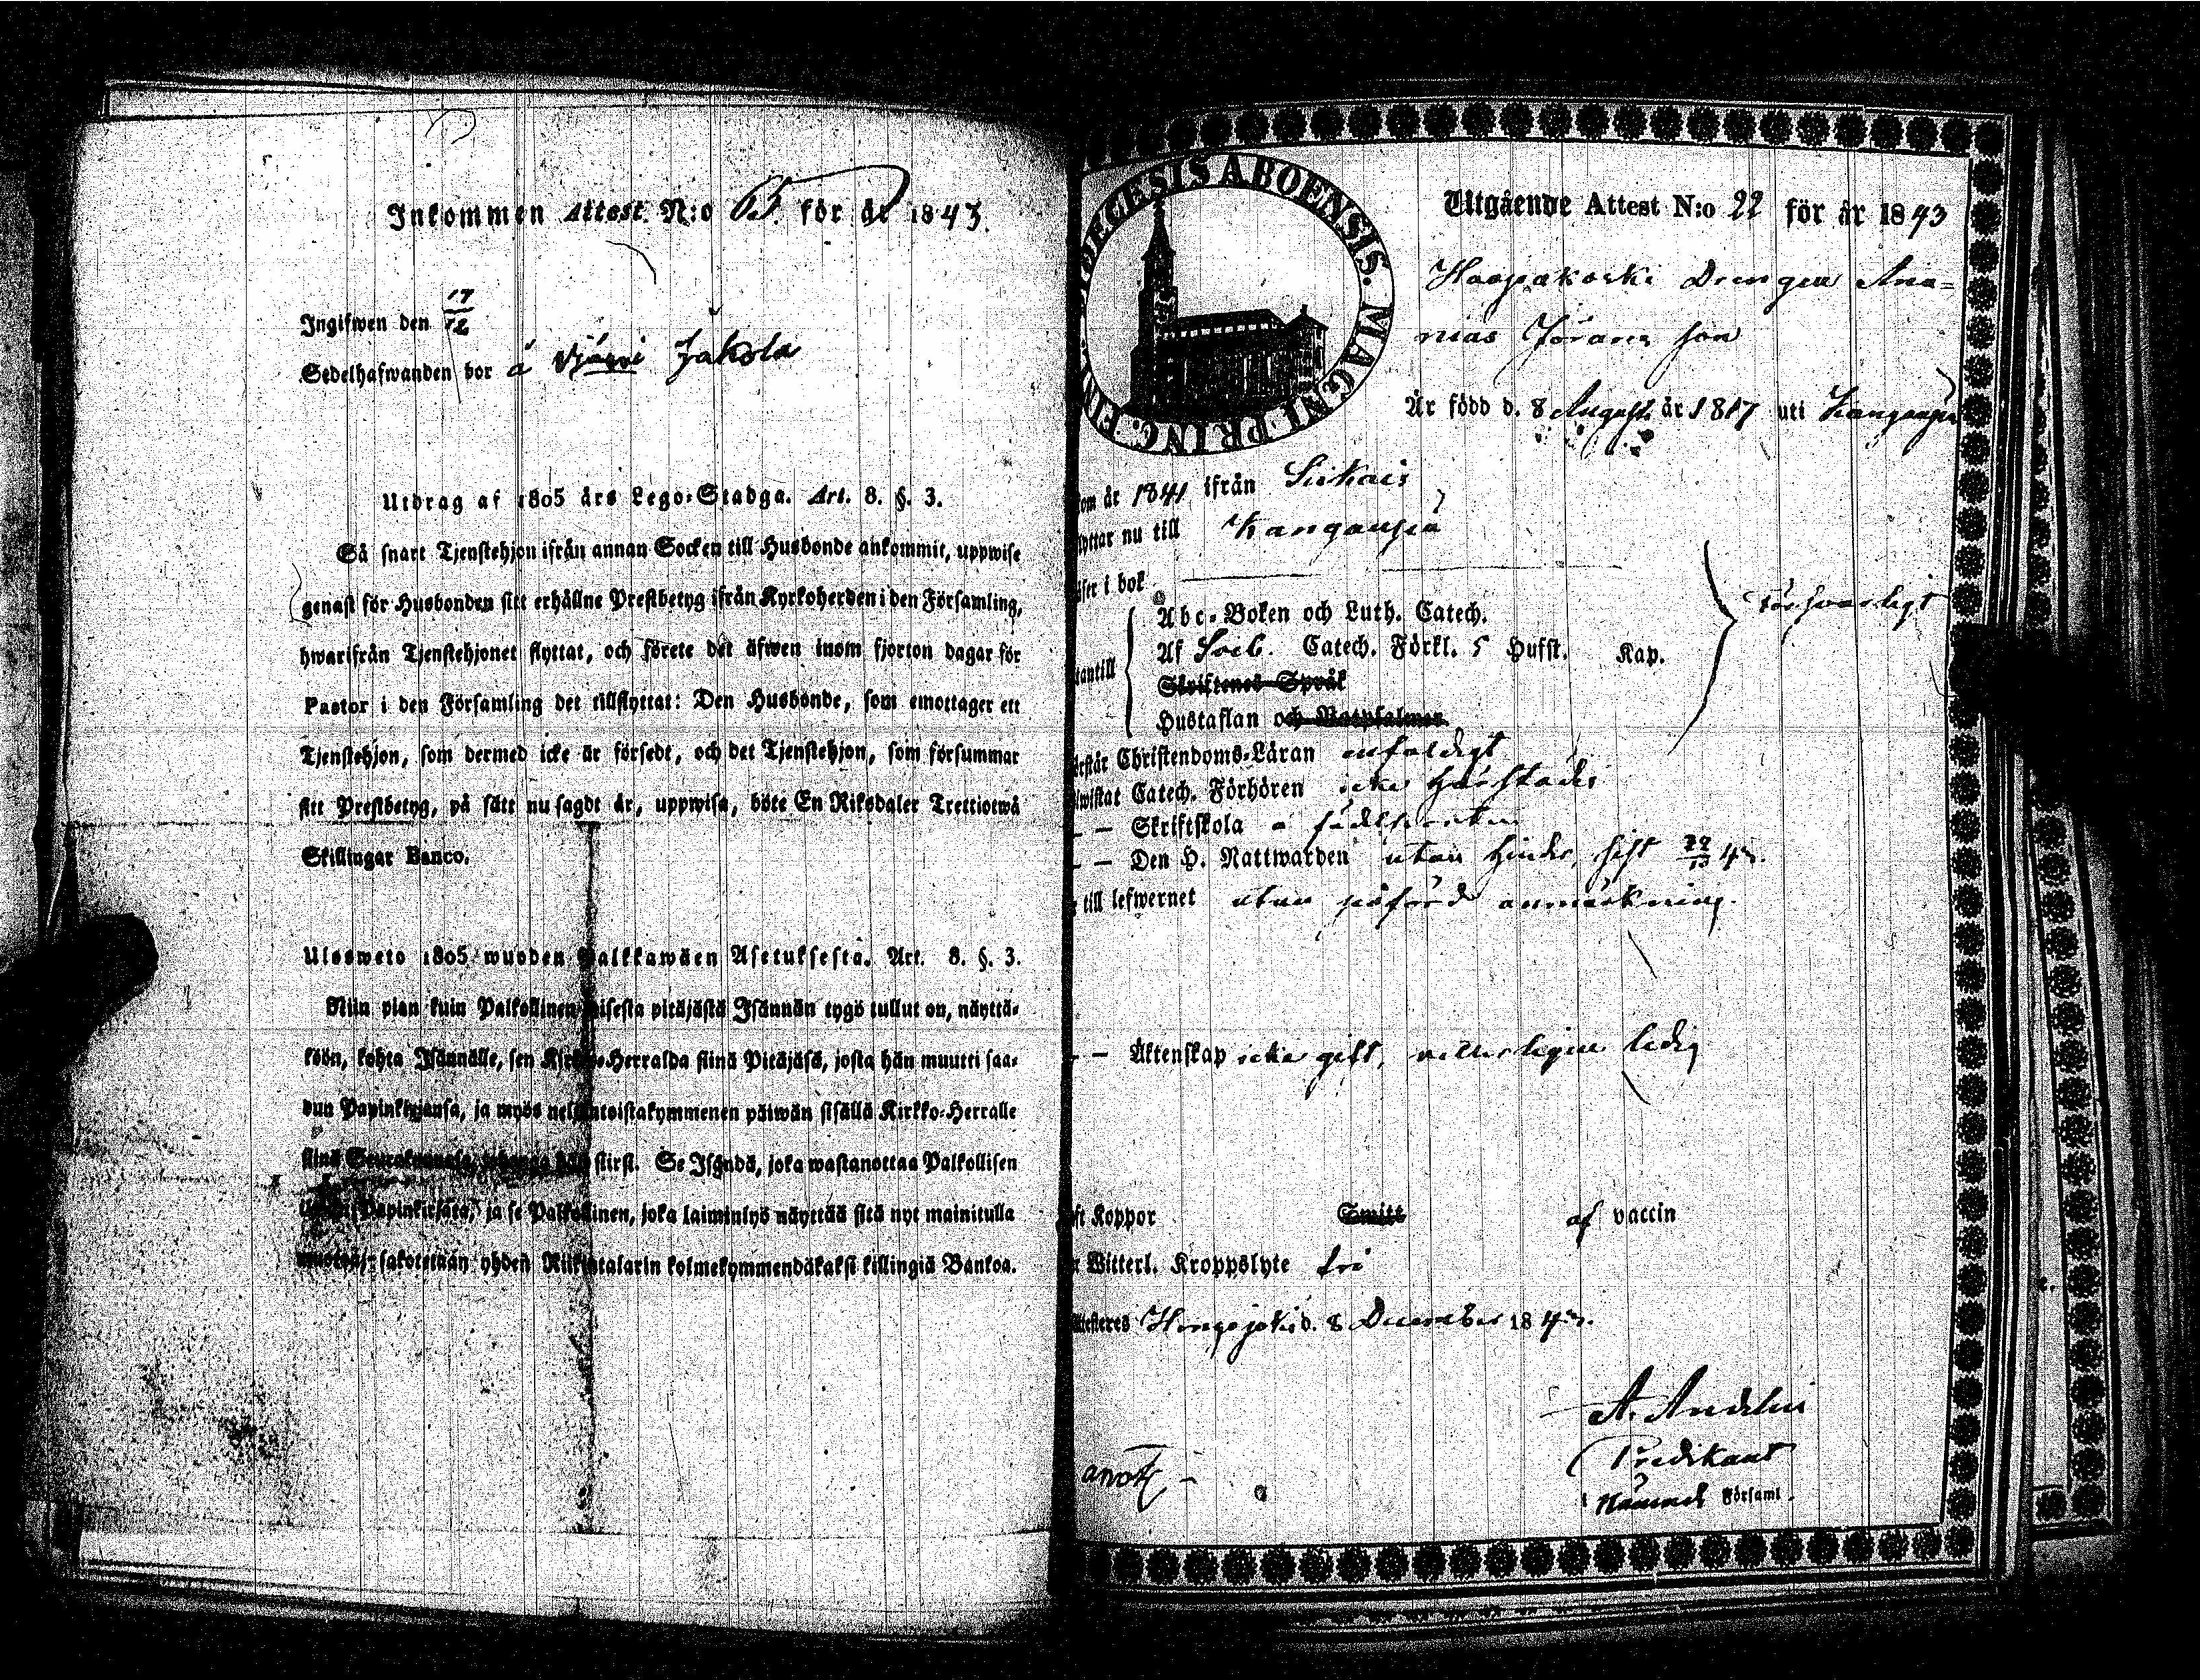 Inkommen Attest. N:o 65. för år 1843.
Ingifwen den 17/12
Sedelhafwanden bor å Jakola
Utdrag af 1805 års Lego-Stadga. Art. 8. §. 3.
Så snart Tjenstehjon ifrån annan Socken till Husbonde ankommit, uppwise
genast för Husbonden sitt erhållne Prestbetyg ifrån Kyrkoherden i den Församling,
hwarifrån Tjenstehjonet flyttat, och förete det äfwen inom fjorton dagar för
Pastor i den Församling det tillflyttat: Den Husbonde, som emottager ett
Tjenstehjon, som dermed icke är försedt, och det Tjenstehjon, som försummar
sitt Prestbetyg, på sätt nu sagdt är, uppwisa, böte En Riksdaler Trettiotwå
Skillingar Banco.
Ulosweto 1805 wuoden Palkkawäen Asetuksesta. Art. 8. §. 3.
Niin pian kuin Palkollinen toisesta pitäjästä Isännän tygö tullut on, näyttä-
köön, kohta Isännälle, sen Kirkko-Herralda siinä Pitäjäsä, josta hän muutti saa-
dun Papinkirjansa, ja myös neljäntoistakymmenen päiwän sisällä Kirkko-Herralle
siinä Seurakunnasa, siirsi. Se Isändä, joka wastanottaa Palkollisen
Papinkirjata, ja se Palkollinen, joka laiminlyö näyttää sitä nyt mainitulla
muotoa, sakotetaan yhden Riikintalarin kolmekymmendäkaksi killingiä Bankoa.
DIOECESIS ABOENSIS. MAGNI PRINC. FIN.
Utgående Attest N:o 22 för år 1843
Haapakoski Drengen Ana=
nias Jörans son
Är född d. 8 August. år 1817 uti Kangan
om år 1841 ifrån Siikais
flyttar nu till
läser i bok
Abc-Boken och Luth. Catech.
Af Sveb. Catech. Förkl. 5 Hufst. Kap.
Skriftenes Språk
utantill
Hustaflan och Botpsalmer
försvarligt
förstår Christendoms-Läran enfaldigt
bewistat Catech. Förhören icke härstädes
– – Skriftskola i
– – Den H. Nattwarden utan hinder, sist 22/10 43.
till lefwernet utan påförd anmärkning.
– – Äktenskap icke gift, ledig
haft Koppor Smitt af vaccin
Witterl. Kroppslyte fri
Attesteres Hongojoki d. 8 December 1843.
A. Andelin
Predikant
i Församl.
anot.